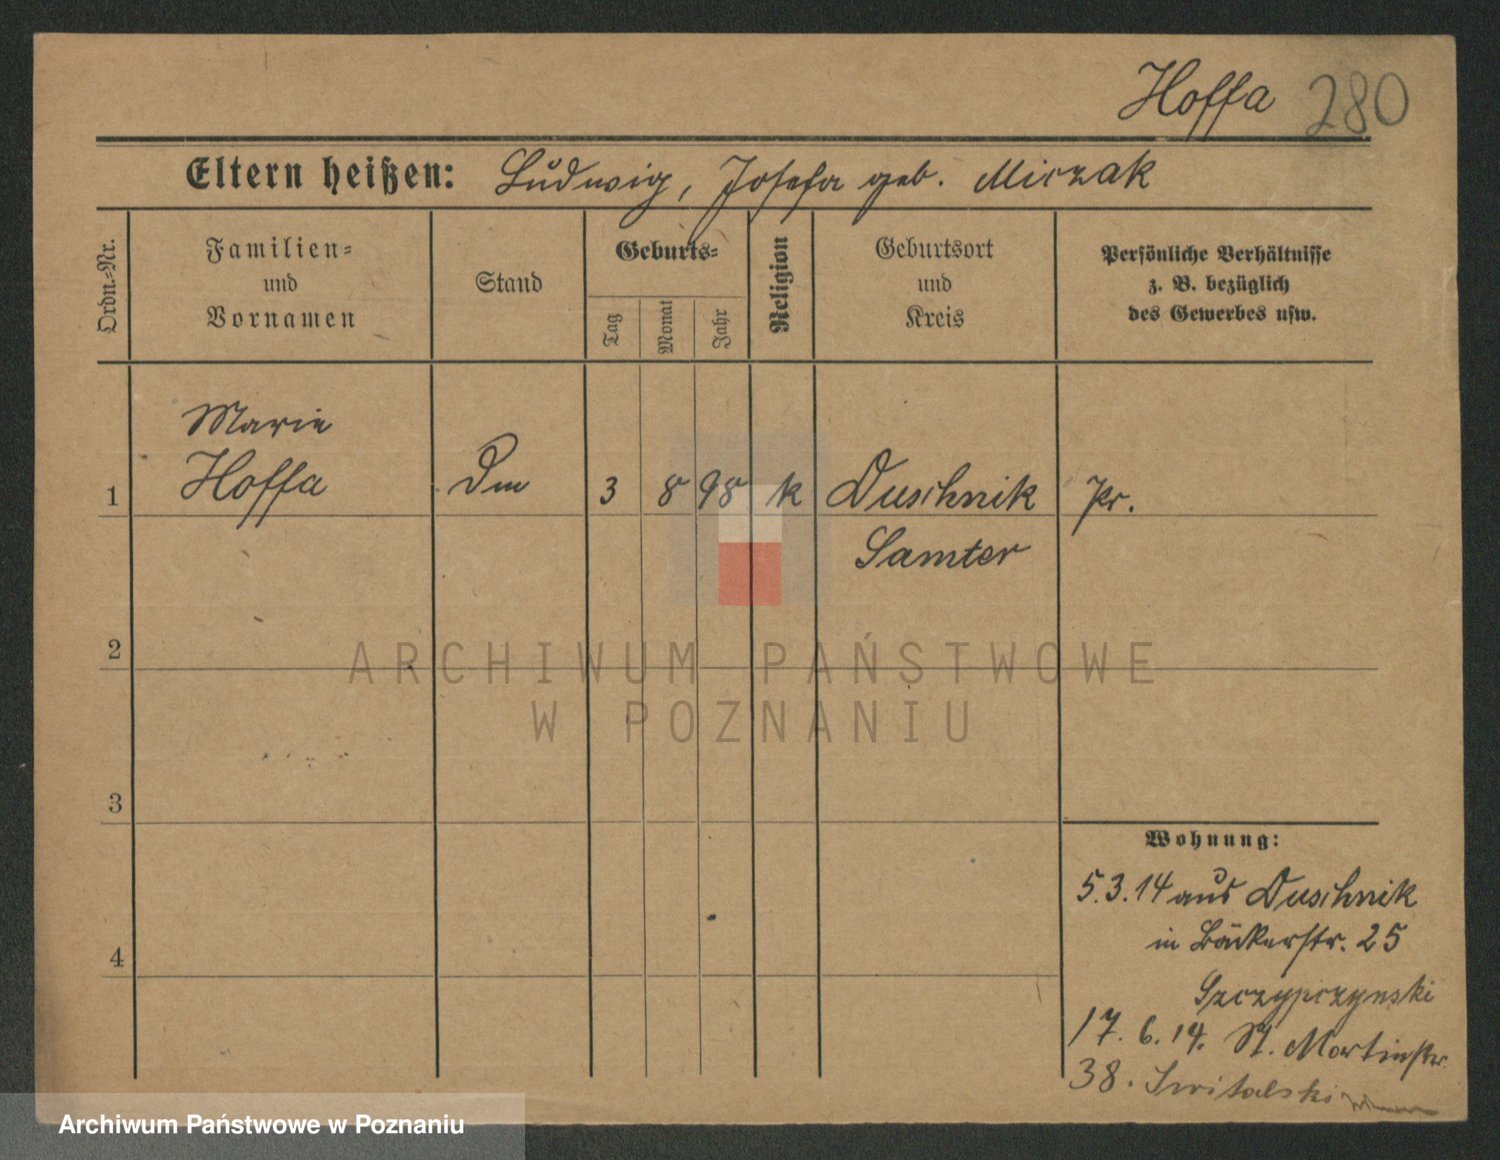 Hoffa 280
Eltern heißen: Ludwig, Josefa geb. Miczak
Ordn.-Nr.
Familien-
und
Vornamen
Stand
Geburts-
Tag
Monat
Jahr
Religion
Geburtsort
und
Kreis
Persönliche Verhältnisse
z. B. bezüglich
des Gewerbes usw.
Marie
1 Hoffa Dm 3 8 98 k Duschnik Pr.
Samter
2
ARCHIWUM PAŃSTWOWE
W POZNANIU
3
Wohnung:
5.3.14 aus Duschnik
in Bäckerstr. 25
4
Szczypczynski
17.6.14. St. Martinstr.
38. Switalski
Archiwum Państwowe w Poznaniu